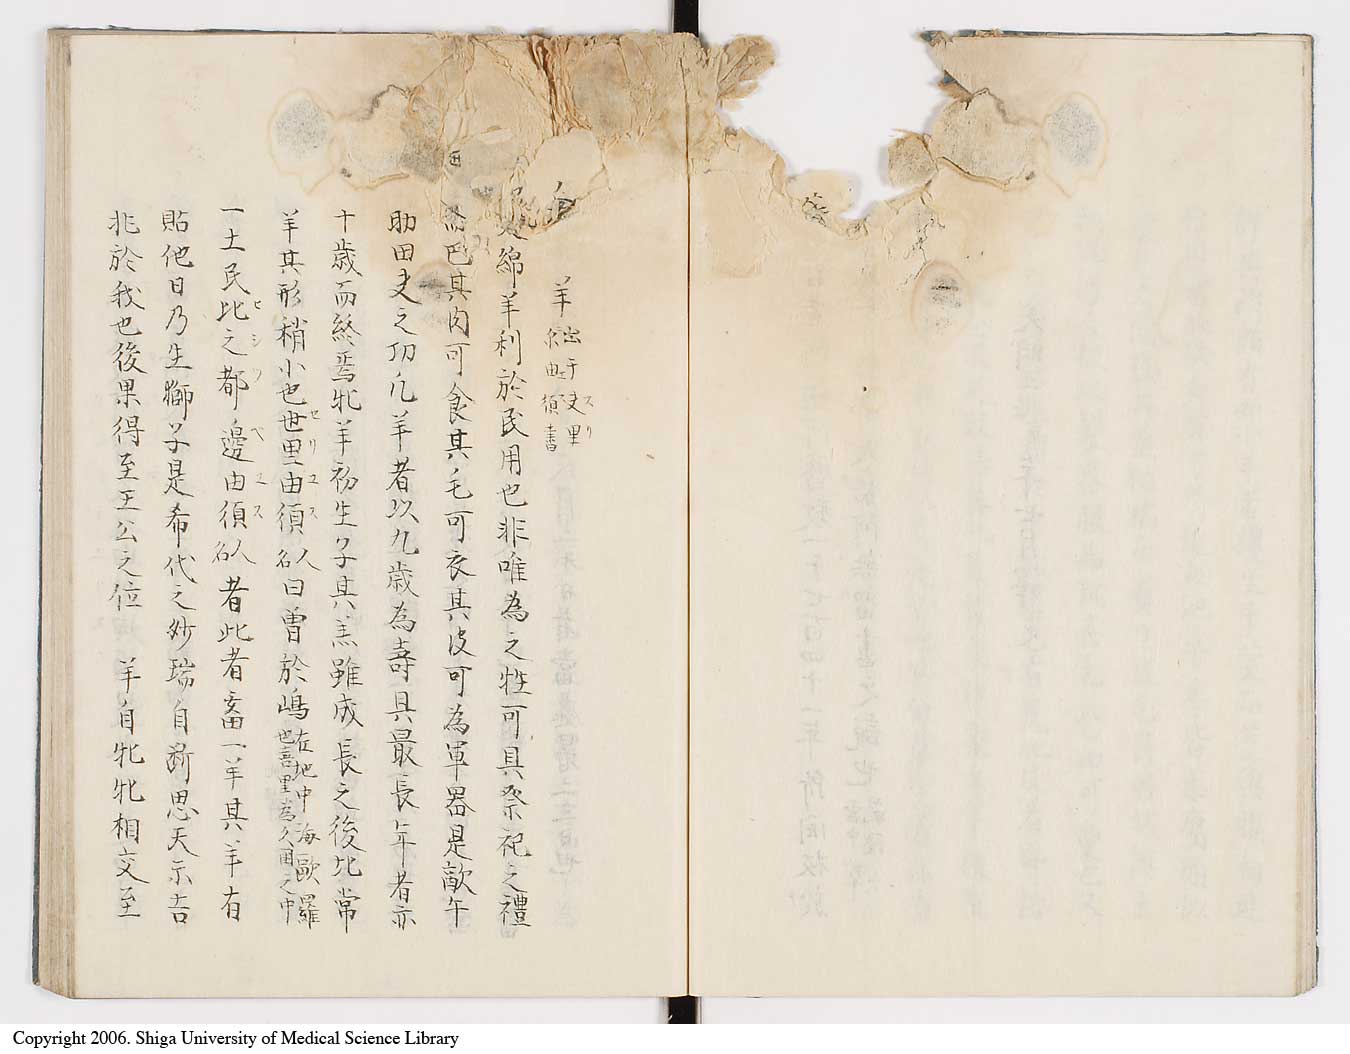 羊 出于史里
尓由須書
綿羊利於民用也非唯為之牲可具祭祀之禮
而已其肉可食其毛可衣其皮可為軍器是敵午
助田夫之功凡羊者以九歳為壽其最長年者亦
十歳而終焉牝羊初生子其羔雖成長之後比常
羊其形稍小也世里由須人名曰曽於嶋在地中海歐羅
也喜里為久国之中
一土民比之都邊由須人名者此者畜一羊其羊有
貼他日乃生獅子是希代之妙瑞自斯思天示吉
兆於我也後果得至王公之位 羊自牝牝相交至
スリ
セリユス
ヒシツ
ベユス
Copyright 2006. Shiga University of Medical Science Library